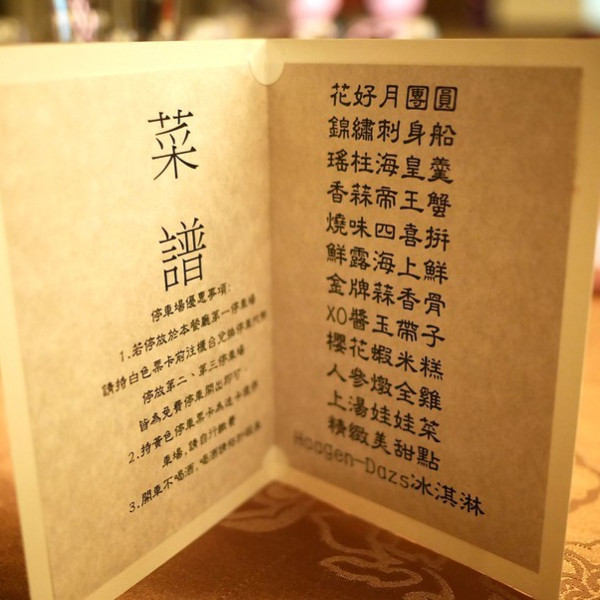 菜
譜
停車場優惠事項:
1.若停放於本餐廳第一停車場
請持白色票卡前往櫃台兌換停車代幣
停放第二、第三停車場
皆為免費停車開出即可.
2.持黃色停車票卡為
車場,請自行繳費
3.開車不喝酒,喝酒請
花好月團圓
錦繡刺身船
瑤柱海皇羹
香蒜帝王蟹
燒味四喜拼
鮮露海上鮮
金牌蒜香骨
XO醬玉帶子
櫻花蝦米糕
人參燉全雞
上湯娃娃菜
精緻美甜點
Haagen-Dazs冰淇淋